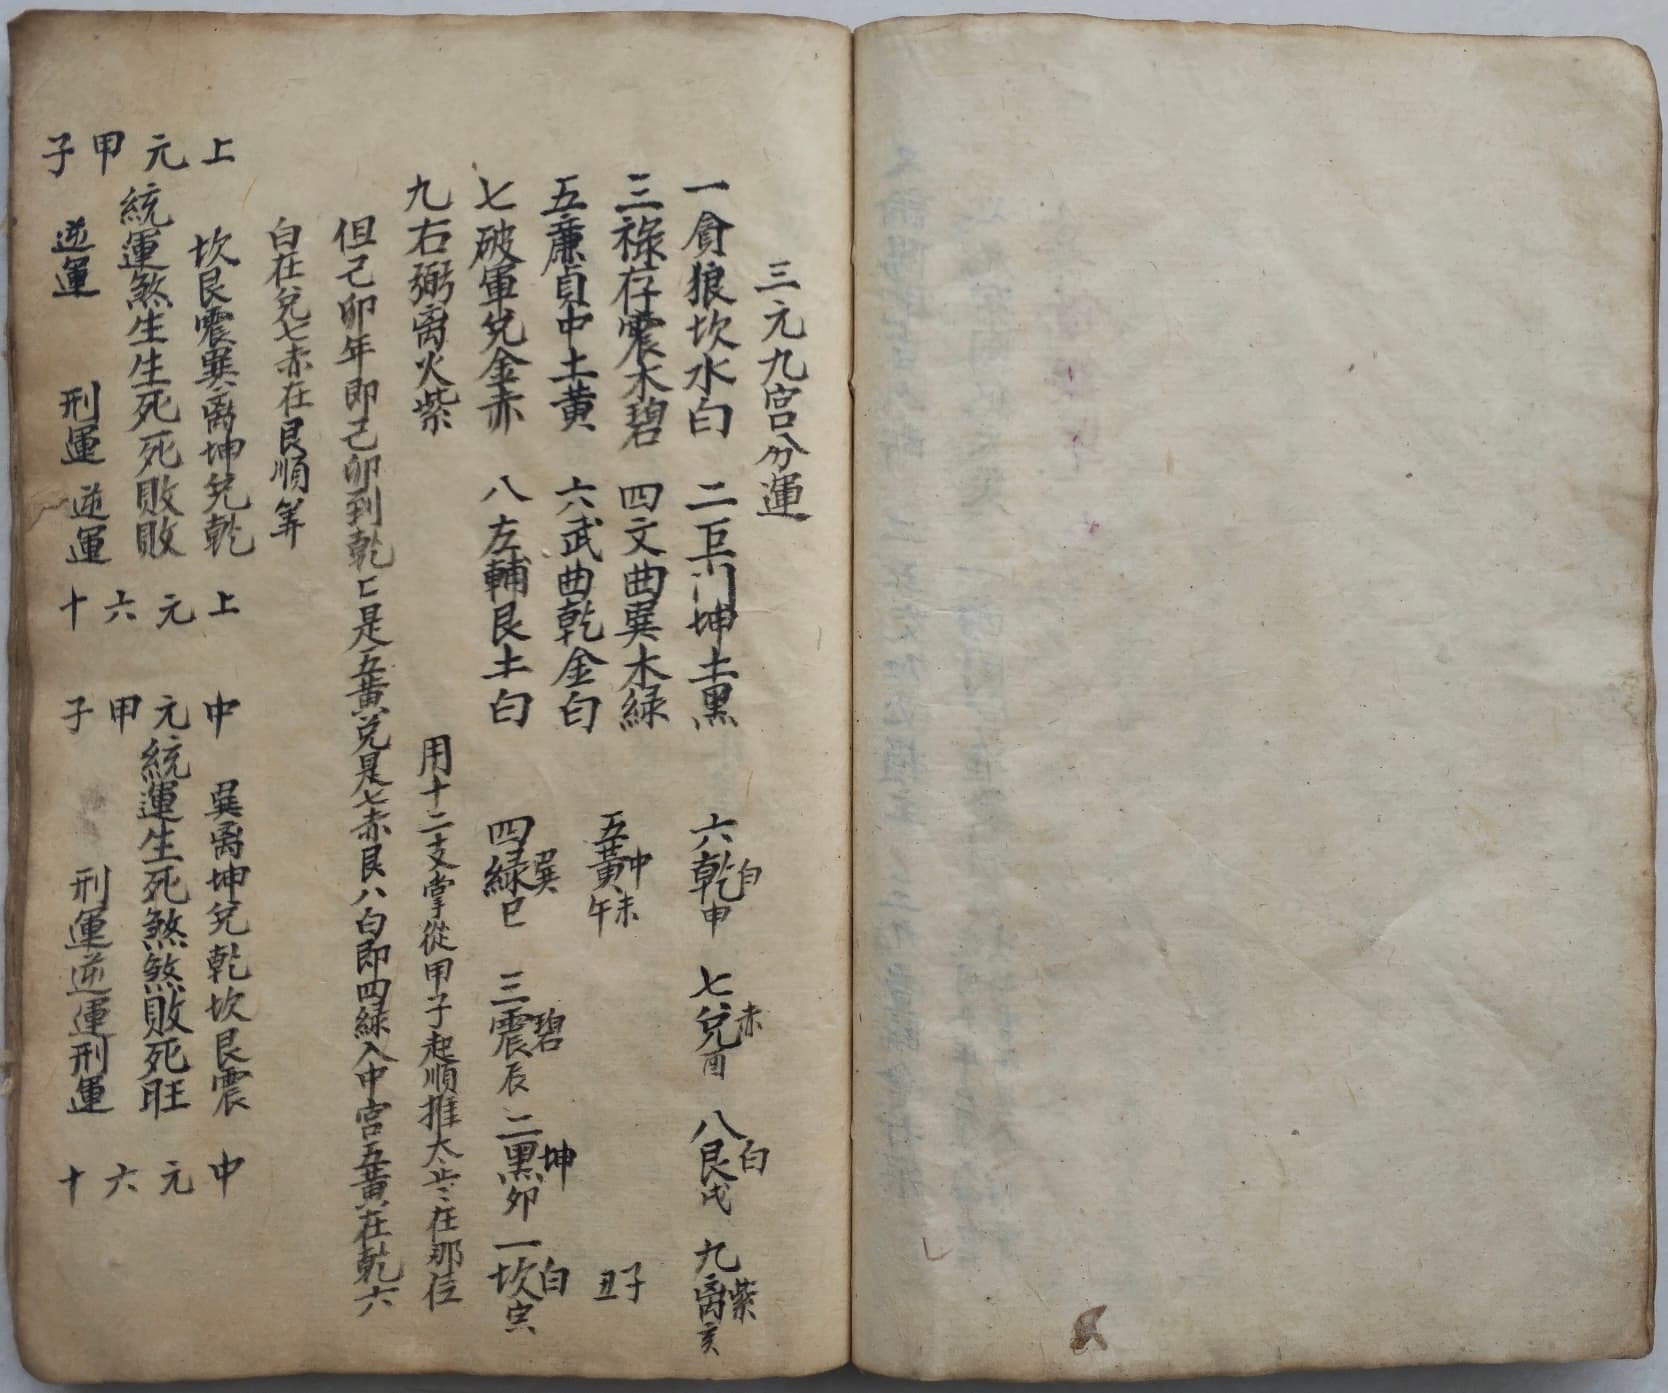 三元九宮分運
一貪狼坎水白 二巨门坤土黑
三祿存震木碧 四文曲巽木緑
五廉貞中土黄 六武曲乾金白
七破軍兌金赤 八左輔艮土白
九右弼离火紫
六乾白申 七兌赤酉 八艮白戌 九离紫亥
五黄中未午 子丑
四緑巽巳 三震碧辰 二黑坤卯 一坎白
用十二支掌從甲子起順推太歩〻在那位
但己卯年即己卯到乾 是五黄兌是七赤艮八白即四緑入中宮五黄在乾六
白在兌七赤在艮順筭
上元甲子
坎艮震巽离坤兌乾
統運煞生生死死敗敗
逆運 刑運 逆運
上元六十
中元甲子
巽离坤兌乾坎艮震
統運生死煞煞敗死旺
刑運逆運刑運
中元六十